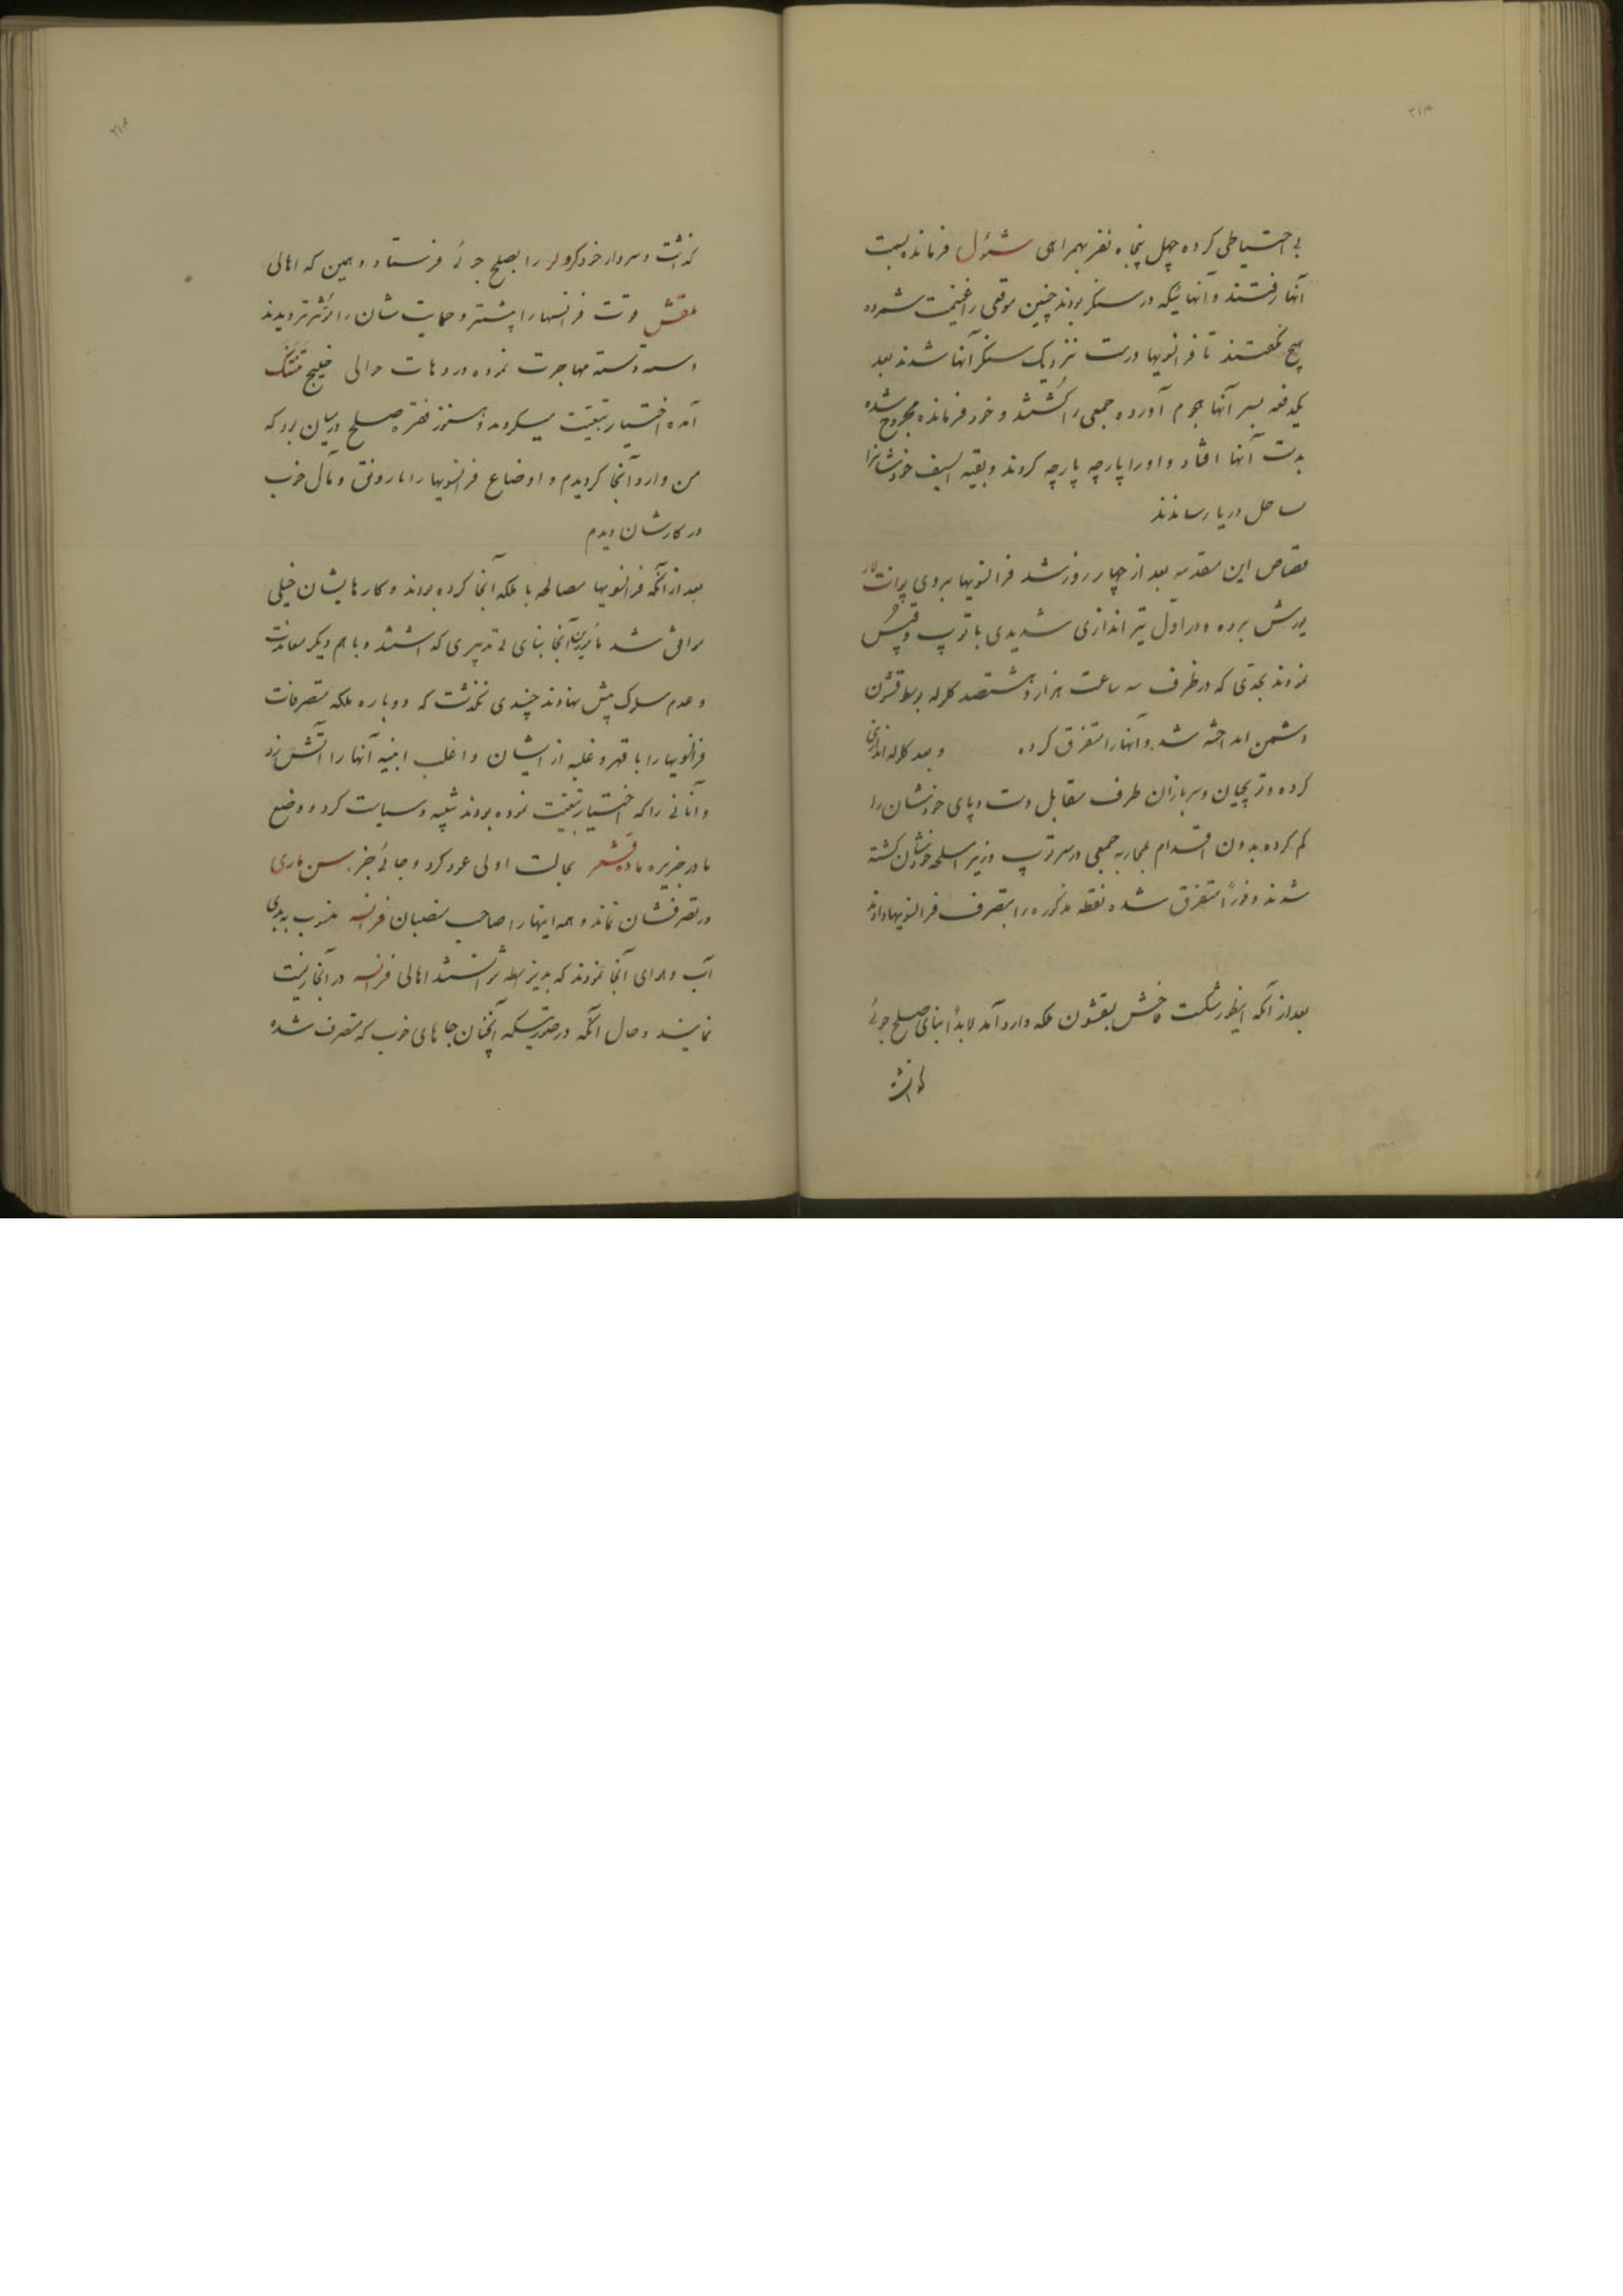 ۲۱۳
بی احتیاطی کرده چهل پنجاه نفر بهمراهی شئول فرمانده بسمت
آنها رفتند و آنهائیکه در سنگر بودند چنین موقعی را غنیمت شمرده
هیچ نگفتند تا فرانسویها درست نزدیک سنگر آنها شدند بعد
یکدفعه بسر آنها هجوم آورده جمعی را کشتند و خود فرمانده مجروح شده
بدست آنها افتاد و او را پارچه پارچه کردند و بقیه السیف خودشانرا
بساحل دریا رساندند
تقاص این مقدمه بعد از چهار روز شد فرانسویها بروی پوانت لار
یورش برده و در اول تیر اندازی شدیدی با توپ و
نمودند بحدی که در ظرف سه ساعت هزار و هشتصد گلوله بوسط قشون
دشمن انداخته شد و آنها را متفرق کرده و بعد گلوله اندازی
کرده و توپچیان و سربازان طرف مقابل دست و پای خودشان را
گم کرده بدون اقدام بمحاربه جمعی در سر توپ و زیر اسلحه خودشان کشته
شدند و فوراً متفرق شده نقطه مذکوره را بتصرف فرانسویها دادند
بعد از آنکه اینطور شکست فاحش بقشون ملکه وارد آمد لابداً بنای صلح جوئی
گذاشت
۲۱۴
گذاشت و سردار خود کرولر را بصلح جوئی فرستاد و همین که اهالی
بلقش قوت فرانسها را بیشتر و حمایت شان را مؤثرتر دیدند
دسته دسته مهاجرت نموده در دهات حوالی خلیج
آمده اختیار تبعیت میکردند و هنوز فقره صلح در میان بود که
من وارد آنجا گردیدم و اوضاع فرانسویها را با رونق و مآل خوب
در کارشان دیدم
بعد از آنکه فرانسویها مصالحه با ملکه آنجا کرده بودند و کارهایشان خیلی
موافق شد مأمورین آنجا بنای بی تدبیری گذاشتند و با هم دیگر معاندت
و عدم سلوک پیش نهادند چندی نگذشت که دوباره ملکه متصرفات
فرانسویها را با قهر و غلبه از ایشان و اغلب ابنیه آنها را آتش زد
و آنانی را که اختیار تبعیت نموده بودند تنبیه و سیاست کرد و وضع
ما در جزیره ماده قشقر بحالت اولی عود کرد و جائی جز سن ماری
در تصرفشان نماند و همه اینها را صاحب منصبان فرانسه منسوب به بدی
آب و هوای آنجا نمودند که بدینواسطه نتوانستند اهالی فرانسه در آنجا زیست
نمایند و حال آنکه در صورتیکه آنچنان جاهای خوب که متصرف شده